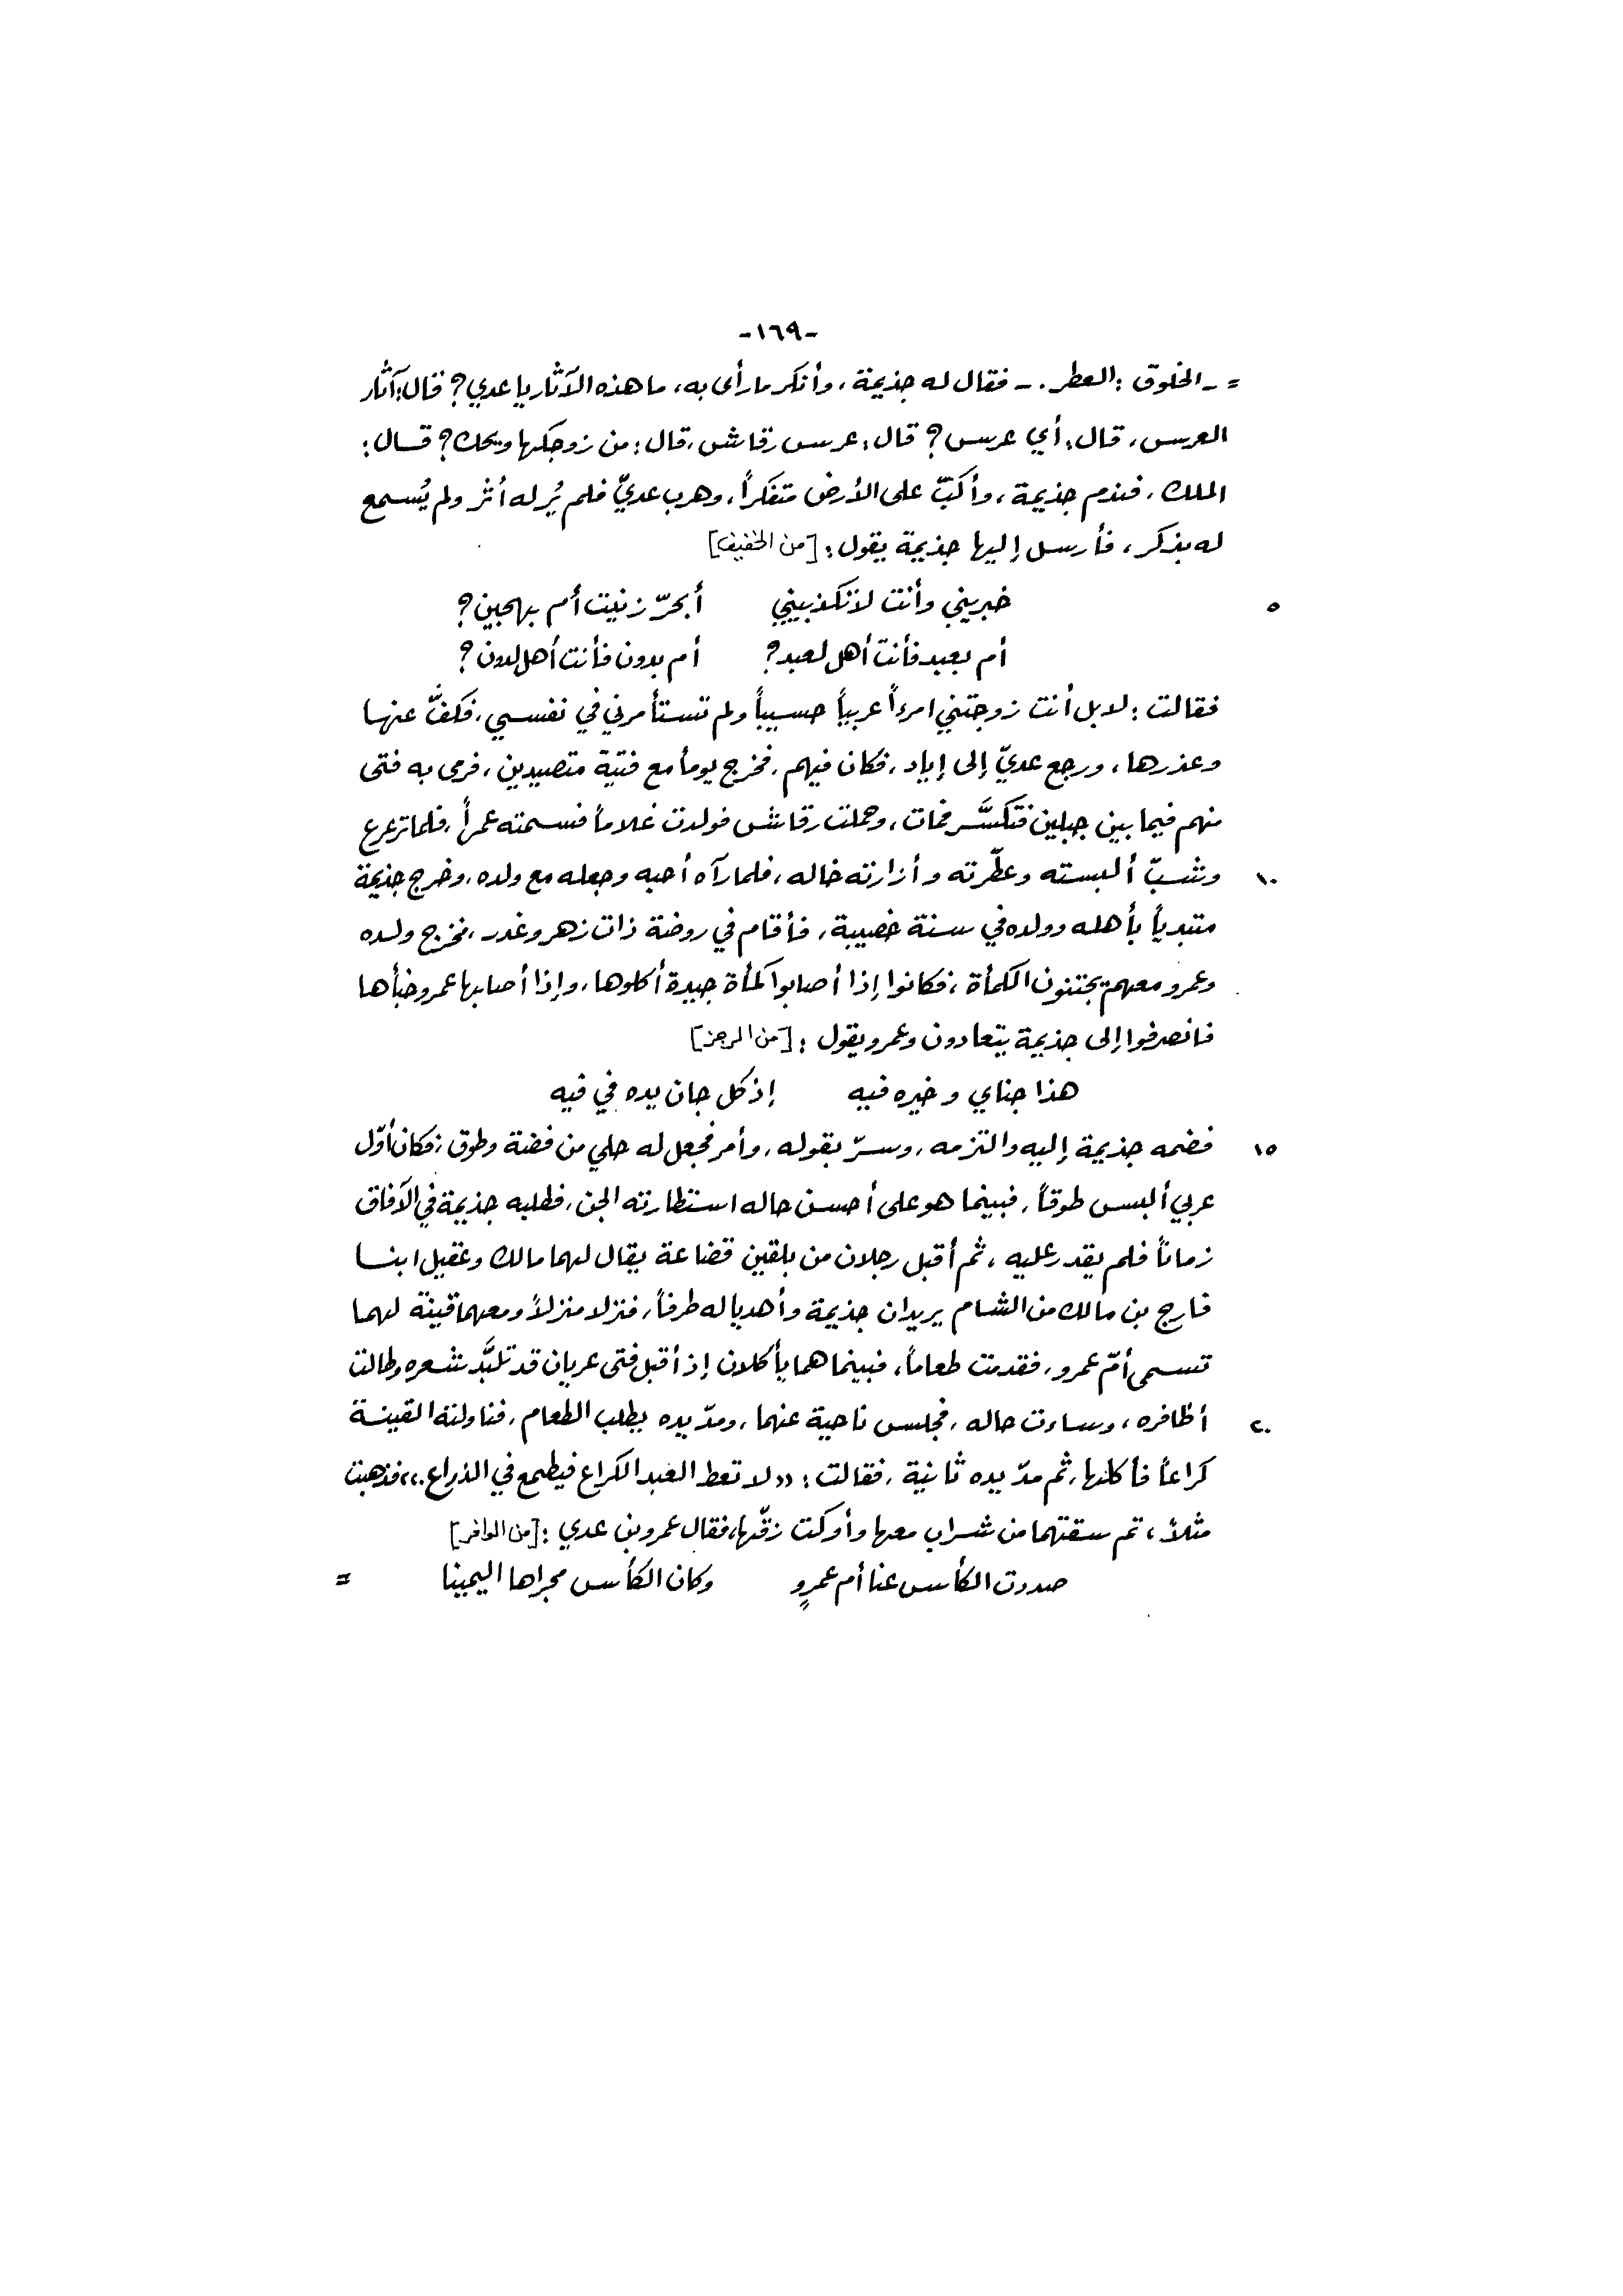 -١٦٩-
= - الخلوق: العطر. - فقال له جذيمة، وأنكر ما رأى به، ما هذه الآثار يا عدي؟ قال: آثار
العرس، قال: أي عرس؟ قال: عرس رقاش، قال: من زوجكها ويحك؟ قال:
الملك، فندم جذيمة، وأكبّ على الأرض متفكراً، وهرب عديّ فلم يُر له أثر ولم يُسمع
له بذكر، فأرسل إليها جذيمة يقول: [من الخفيف]
٥ خبريني وأنت لا تكذبيني أبحرّ زنيت أم بهجين؟
أم بعبد فأنت أهل لعبد؟ أم بدون فأنت أهل لدون؟
فقالت: لا بل أنت زوجتني امرءاً عربياً حسيباً ولم تستأمرني في نفسي، فكفّ عنها
وعذرها، ورجع عديّ إلى إياد، فكان فيهم، فخرج يوماً مع فتية متصيدين، فرمى به فتى
منهم فيما بين جبلين فتكسَّر فمات، وحملت رقاش فولدت غلاماً فسمته عمراً، فلما ترعرع
١٠ وشبّ ألبسته وعطّرته وأزارته خاله، فلما رآه أحبه وجعله مع ولده، وخرج جذيمة
متبدياً بأهله وولده في سنة خصيبة، فأقام في روضة ذات زهر وغدر، فخرج ولده
وعمرو معهم يجتنون الكمأة، فكانوا إذا أصابوا كمأة جيدة أكلوها، وإذا أصابها عمرو خبأها
فانصرفوا إلى جذيمة يتعادون وعمرو يقول: [من الرجز]
هذا جناي وخيره فيه إذ كل جان يده في فيه
١٥ فضمه جذيمة إليه والتزمه، وسرّ بقوله، وأمر فجعل له حلي من فضة وطوق، فكان أوّل
عربي ألبس طوقاً، فبينما هو على أحسن حاله استطارته الجن، فطلبه جذيمة في الآفاق
زماناً فلم يقدر عليه، ثم أقبل رجلان من بلقين قضاعة يقال لهما مالك وعقيل ابنا
فارج بن مالك من الشام يريدان جذيمة وأهديا له طرفاً، فنزلا منزلاً ومعهما قينة لهما
تسمى أمّ عمرو، فقدمت طعاماً، فبينما هما يأكلان إذ أقبل فتى عريان قد تلبَّد شعره وطالت
٢٠ أظافره، وساءت حاله، فجلس ناحية عنهما، ومدّ يده يطلب الطعام، فناولته القينة
كراعاً فأكلها، ثم مدّ يده ثانية، فقالت: «لا تعط العبد الكراع فيطمع في الذراع.» فذهبت
مثلاً، ثم سقتهما من شراب معها وأوكت زقّها، فقال عمرو بن عدي: [من الوافر]
صددت الكأس عنا أم عمرٍو وكان الكأس مجراها اليمينا =